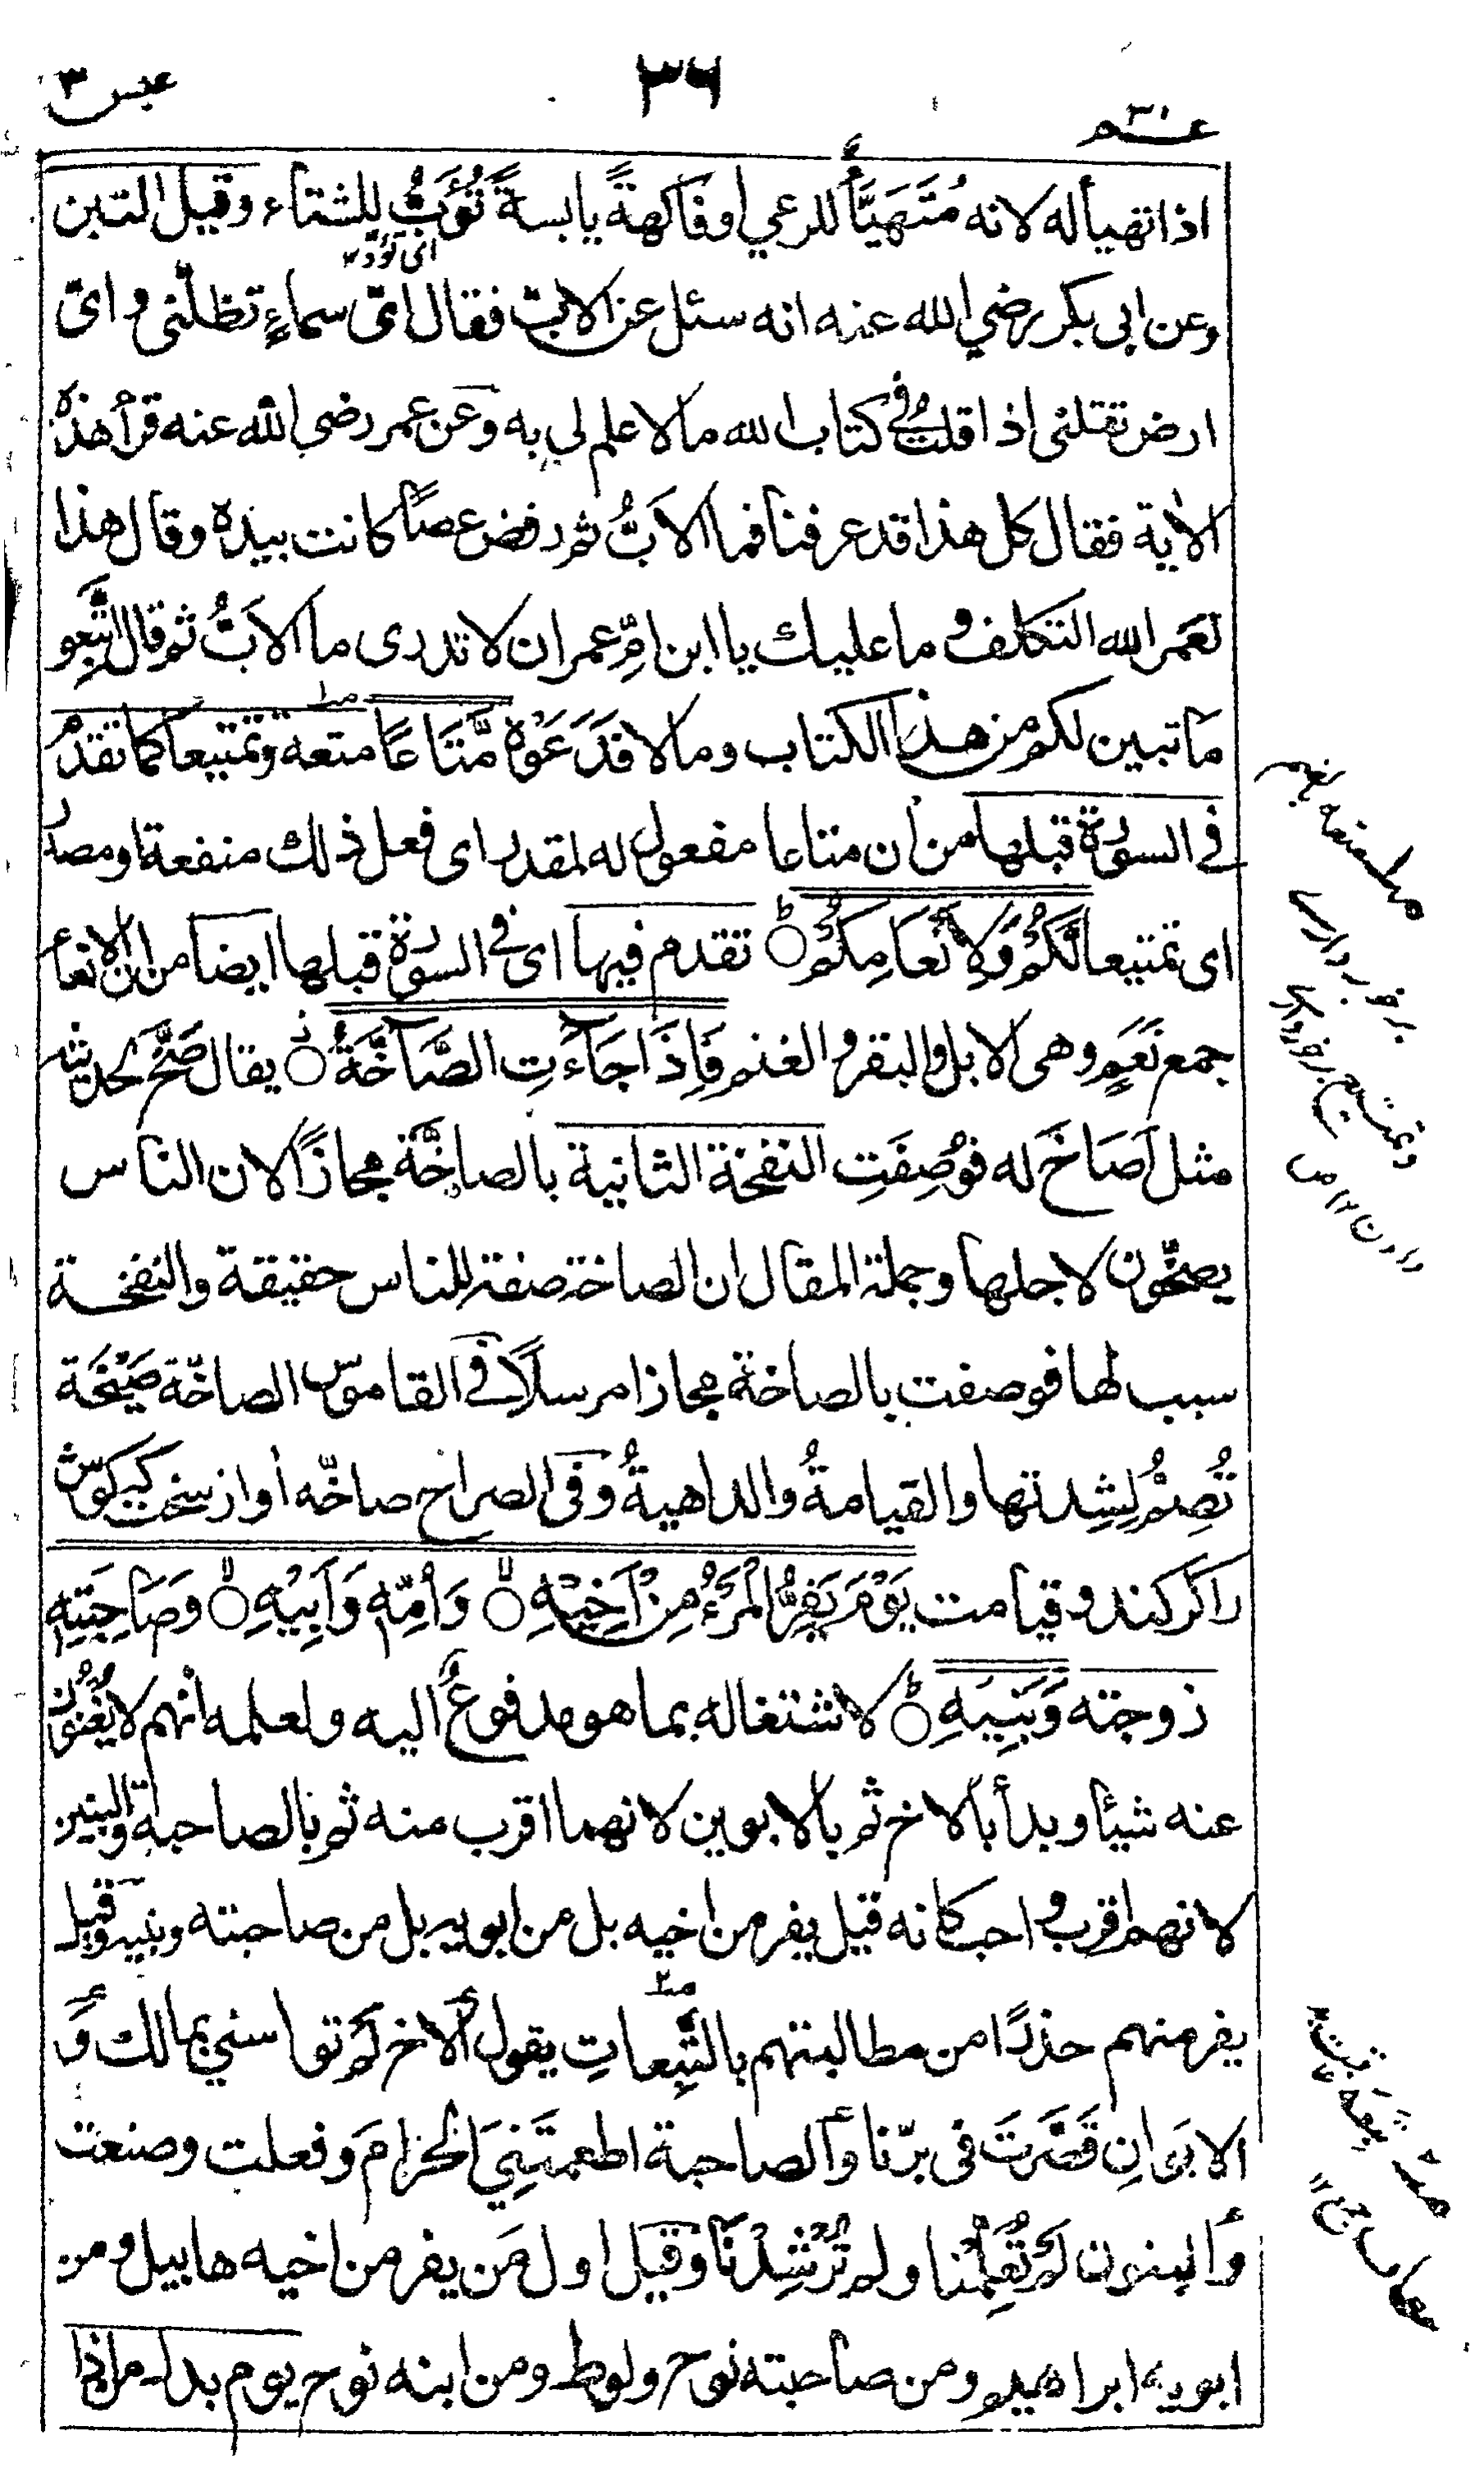 عبس ٣
٣٦
عــم ٣٠
اذا تهيأ له لانه مُتَهَيَّأٌ للرعي او فَاكهةً يابسةً تُؤَبُّ للشتاء وقيل التبن
اى تؤدّ
وعن ابى بكر رضي الله عنه انه سئل عن الابّ فقال اىّ سماءٍ تظلّنى واىّ
ارض تقلنى اذا قلتُ فى كتاب الله ما لا علم لى به وعن عمر رضى الله عنه قرأ هذه
الاٰية فقال كل هذا قد عرفنا فما الابُّ ثم رفض عصًا كانت بيده وقال هذا
لعَمر الله التكلف وما عليك يا ابن امِّ عمر ان لا تدرى ما الابُّ ثم قال اتَّبِعو
ما تبين لكم من هذا الكتاب وما لا فَدَعَوْهُ مَّتَاعًا متعة وتمتيعا كما تقدم
فى السورة قبلها من ان متاعا مفعول له لمقدر اى فعل ذلك منفعة او مصدر
اى تمتيعا لَّكُمْ وَلِاَنْعَامِكُمْ تقدم فيها اى فى السورة قبلها ايضا من ان الانعام
جمع نَعَمٍ وهى الابل والبقر والغنم فَاِذَا جَآءَتِ الصَّآخَّةُ يقال صَخَّ لحديثه
مثل اَصَاخَ له فوُصِفَتِ النفخة الثانية بالصاخَّة مجازًا لان الناس
يصخّون لاجلها وجملة المقال ان الصاخة صفة للناس حقيقة والنفخــة
سبب لها فوصفت بالصاخة مجازا مرسلًا فى القاموس الصاخّة صَيْحَة
تُصِمُّ لِشِدتها والقيامةُ والداهيةُ وفى الصراح صاخّه اواز سخت كه گوش
را كر كند وقيامت يَوْمَ يَفِرُّ الْمَرْءُ مِنْ اَخِيْهِ وَاُمِّهٖ وَاَبِيْهِ وَصَاحِبَتِهٖ
زوجته وَبَنِيْهِ لاشتغاله بما هو مدفوعٌ اليه ولعلمه انهم لا يُغْنُوْن
عنه شيئا وبدأ بالاخ ثم بالابوين لانهما اقرب منه ثم بالصاحبة والبنين
لانهم اقرب واحب كانه قيل يفر من اخيه بل من ابويه بل من صاحبته وبنيه وقيل
يفر منهم حذرًا من مطالبتهم بالتَّبِعاتِ يقول الاخ لم تواسنى بمالك وَ
الابَوانِ قَصَّرتَ فى برّنا والصاحبة اطعمتَنِي الحرامَ وفعلت وصنعت
والبنون لم تُعَلِّمْنا ولم تُرْشِدْنَا وقيل اول مَن يفر من اخيه هابيل ومن
ابويه ابراهيم ومن صاحبته نوح ولوط ومن ابنه نوح يوم بدل من اذا